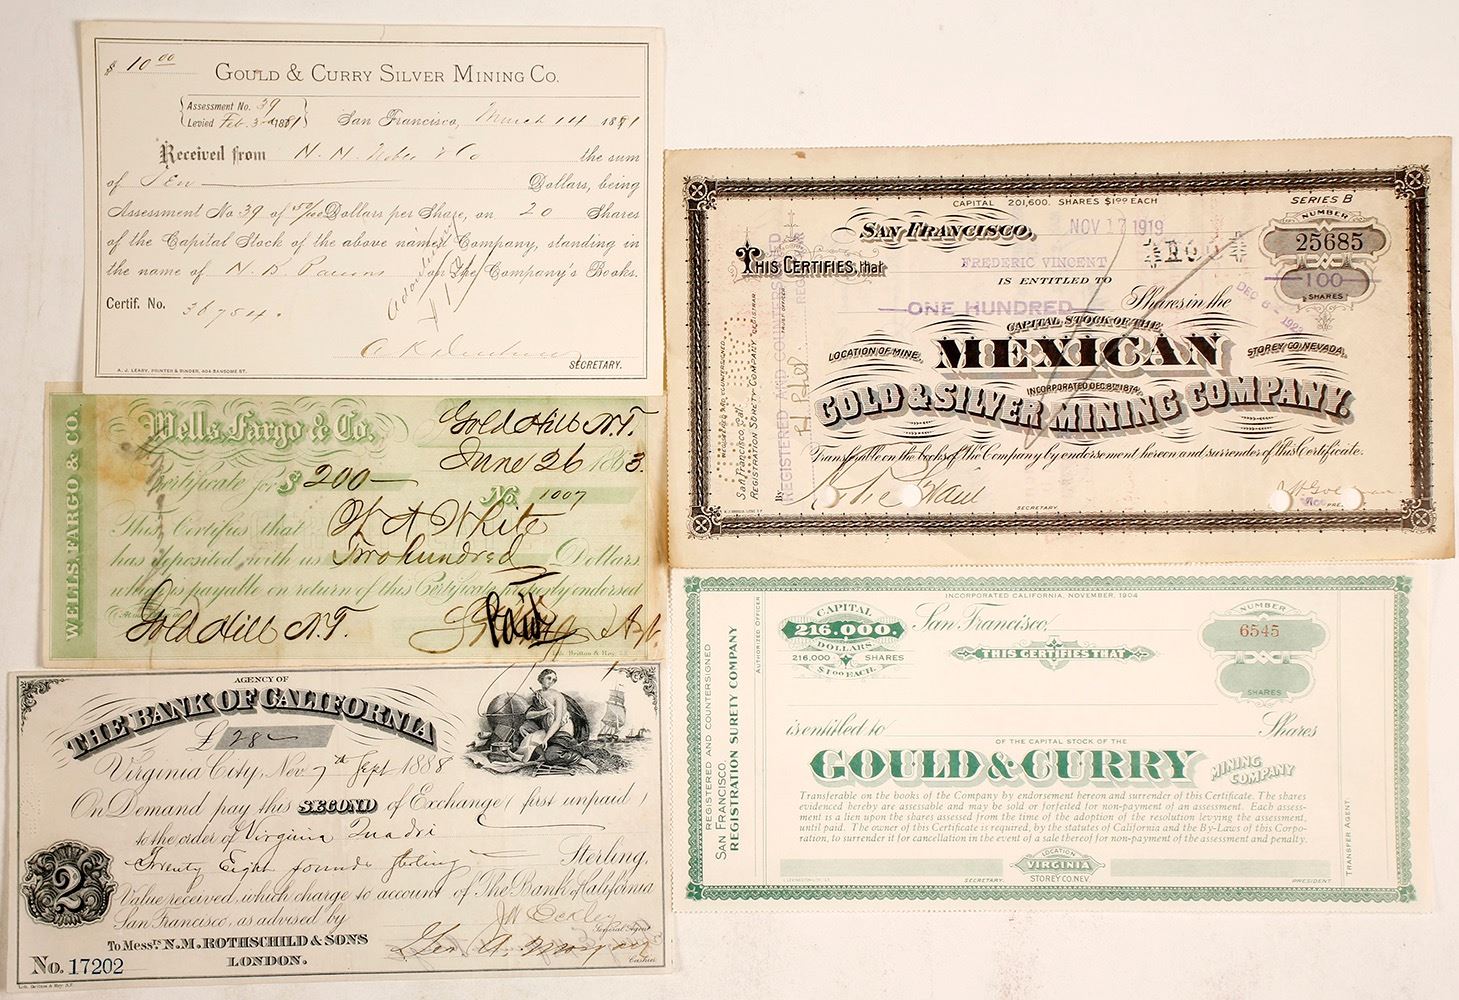 $ 10 00
GOULD & CURRY SILVER MINING CO.
Assessment No. 39
Levied Feb. 3rd 1881
San Francisco, March 14 1881
Received from N. H. & Co the sum
of Ten Dollars, being
Assessment No. 39 of 50/100 Dollars per Share, on 20 Shares
of the Capital Stock of the above named Company, standing in
the name of N. B. Parsons on the Company's Books.
Certif. No. 38754.
SECRETARY.
A. J. LEARY, PRINTER & BINDER, 404 SANSOME ST.
WELLS, FARGO & CO.
Wells Fargo & Co.
Gold Hill N.T.
June 26 1863.
Certificate for $ 200
No. 1007
This Certifies that W A White
has deposited with us Two hundred Dollars
which is payable on return of this Certificate properly endorsed
Gold Hill N.T.
Paid
Agt.
Lith. Britton & Rey, S.F.
AGENCY OF
THE BANK OF CALIFORNIA
£ 28
Virginia City, Nev 7th Sept 1888
On Demand pay this SECOND of Exchange (first unpaid)
to the order of Virginia Quadri
Twenty Eight pounds sterling Sterling,
Value received which charge to account of The Bank of California
San Francisco, as advised by
2
General Agent
To Messrs. N. M. ROTHSCHILD & SONS
LONDON.
Geo. A. Morgan
Cashier
No. 17202
Lith. Britton & Rey S.F.
CAPITAL 201,600. SHARES $1.00 EACH
SERIES B
SAN FRANCISCO, NOV 17 1919
NUMBER
25685
THIS CERTIFIES, that FREDERIC VINCENT
100
SHARES
IS ENTITLED TO
ONE HUNDRED Shares in the
DEC 8 - 1923
CAPITAL STOCK OF THE
LOCATION OF MINE,
MEXICAN
STOREY CO. NEVADA,
INCORPORATED DEC. 8TH 1874,
GOLD & SILVER MINING COMPANY.
Transferable on the books of the Company by endorsement hereon and surrender of this Certificate.
SECRETARY
PRES.
REGISTERED AND COUNTERSIGNED
San Francisco, Cal.
REGISTRATION SURETY COMPANY REGISTRAR
By
INCORPORATED CALIFORNIA, NOVEMBER, 1904
CAPITAL
216,000.
DOLLARS
216,000 SHARES
$1.00 EACH.
San Francisco,
THIS CERTIFIES THAT
NUMBER
6545
SHARES
is entitled to Shares
OF THE CAPITAL STOCK OF THE
GOULD & CURRY MINING COMPANY
Transferable on the books of the Company by endorsement hereon and surrender of this Certificate. The shares
evidenced hereby are assessable and may be sold or forfeited for non-payment of an assessment. Each assess-
ment is a lien upon the shares assessed from the time of the adoption of the resolution levying the assessment,
until paid. The owner of this Certificate is required, by the statutes of California and the By-Laws of this Corpo-
ration, to surrender it for cancellation in the event of a sale thereof for non-payment of an assessment and penalty.
LOCATION
VIRGINIA
STOREY CO. NEV.
SECRETARY.
PRESIDENT
REGISTERED AND COUNTERSIGNED
SAN FRANCISCO,
REGISTRATION SURETY COMPANY
AUTHORIZED OFFICER
TRANSFER AGENT.